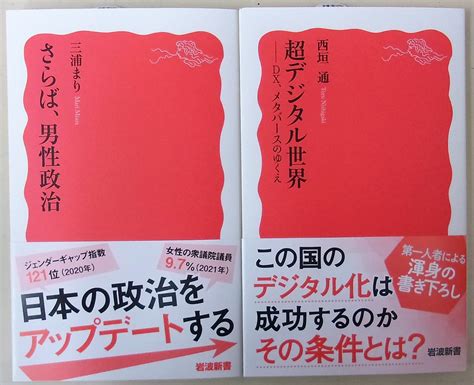 三浦まり
Mari Miura
さらば、男性政治
ジェンダーギャップ指数
121位(2020年)
女性の衆議院議員
9.7%(2021年)
日本の政治を
アップデートする
岩波新書
西垣 通
Toru Nishigaki
超デジタル世界
──DX、メタバースのゆくえ
この国の
デジタル化は
成功するのか
その条件とは?
第一人者による
渾身の
書き下ろし
岩波新書